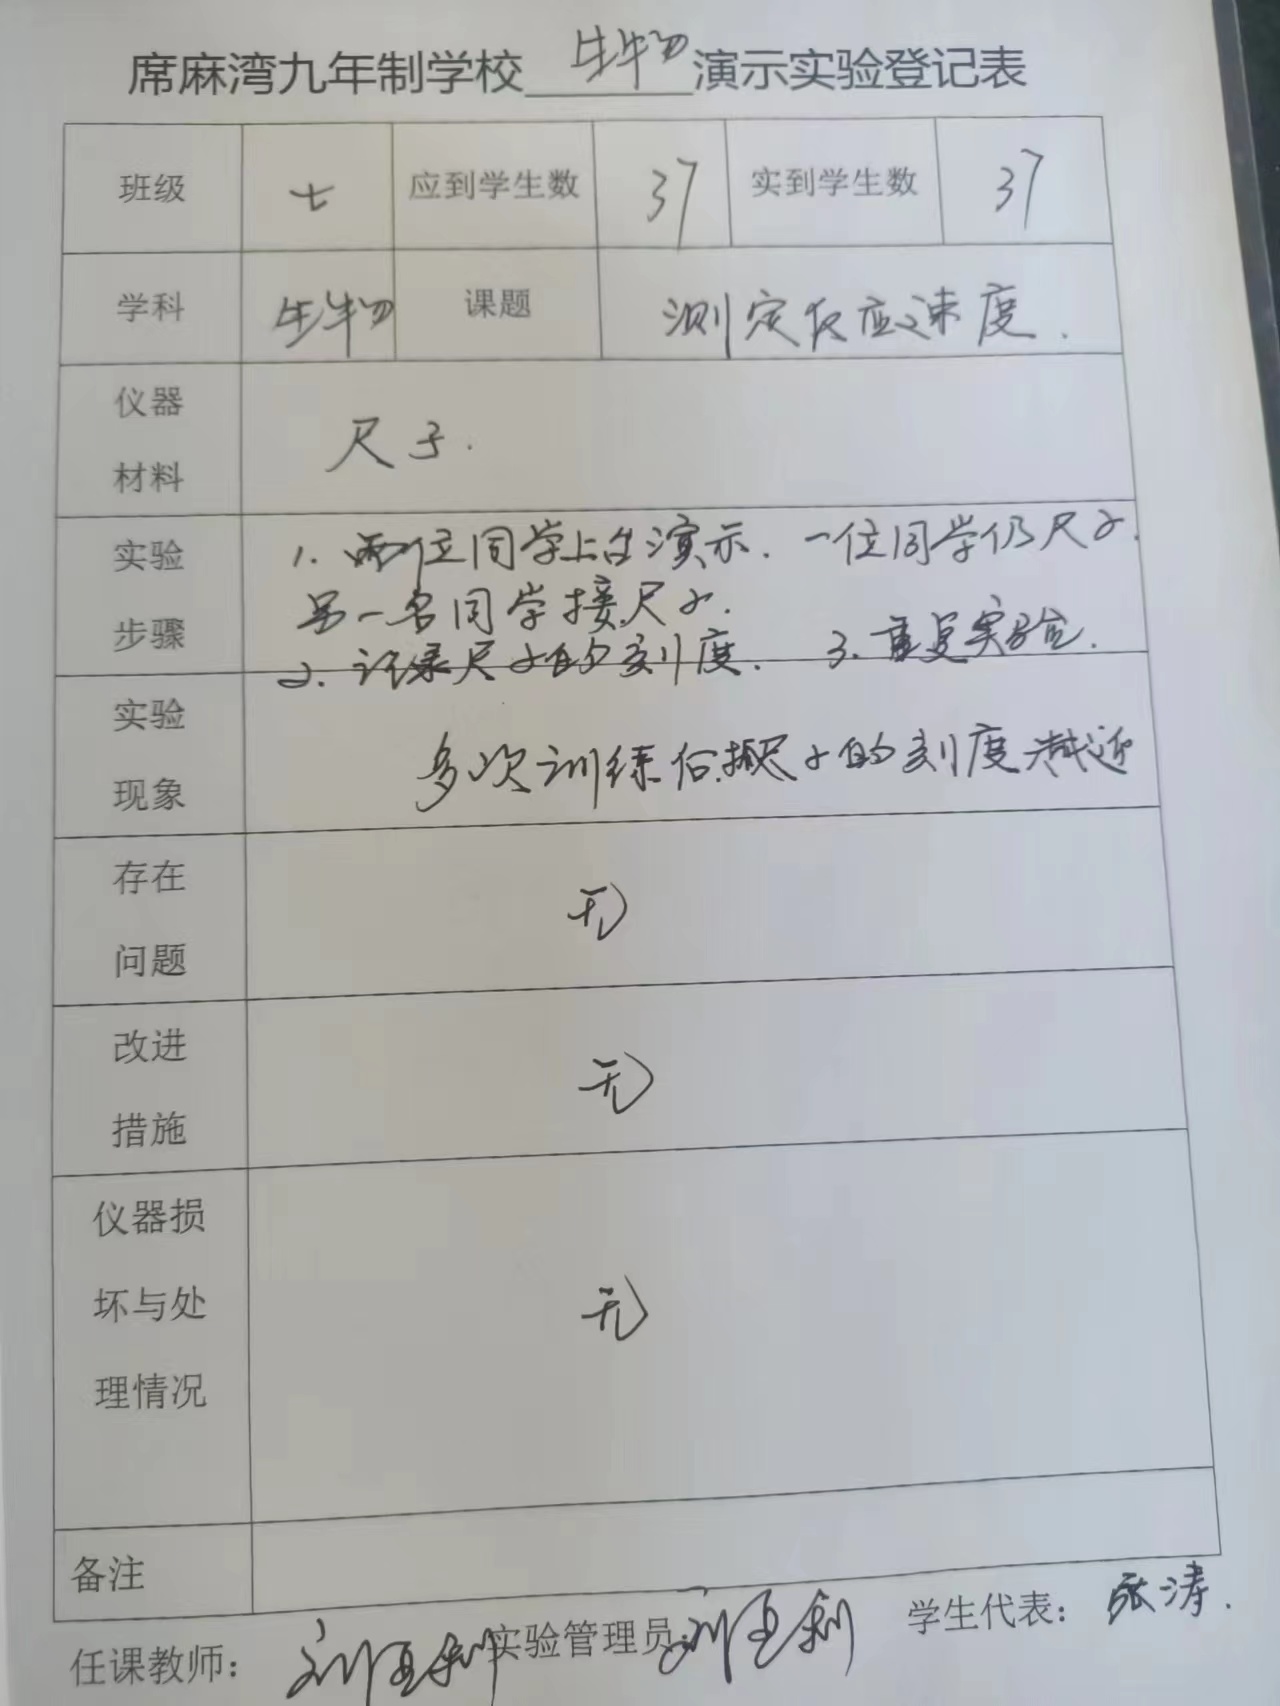 席麻湾九年制学校 生物 演示实验登记表
班级 七 应到学生数 37 实到学生数 37
学科 生物 课题 测定反应速度.
仪器
材料
尺子.
实验
步骤
1. 两位同学上台演示. 一位同学仍尺子.
另一名同学接尺子.
2. 记录尺子的刻度. 3. 重复实验.
实验
现象
多次训练后,抓尺子的刻度越近
存在
问题
无
改进
措施
无
仪器损
坏与处
理情况
无
备注
任课教师: 刘 利 实验管理员: 刘 利 学生代表: 张涛.